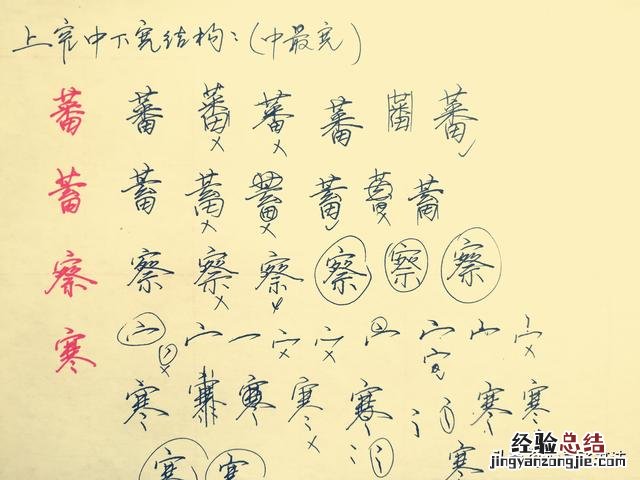 上窄中下宽结构:(中最宽)
蕃 蕃 蕃 蕃 蕃 蕃 蕃
蓄 蓄 蓄 蓄 蓄 蓄 蓄
察 察 察 察 察 察 察
寒 宀 宀 宀 宀 宀 宀 宀
寒 寒 寒 寒 寒 寒 寒
寒 寒 寒
经验总结
jingyanzongjie.com